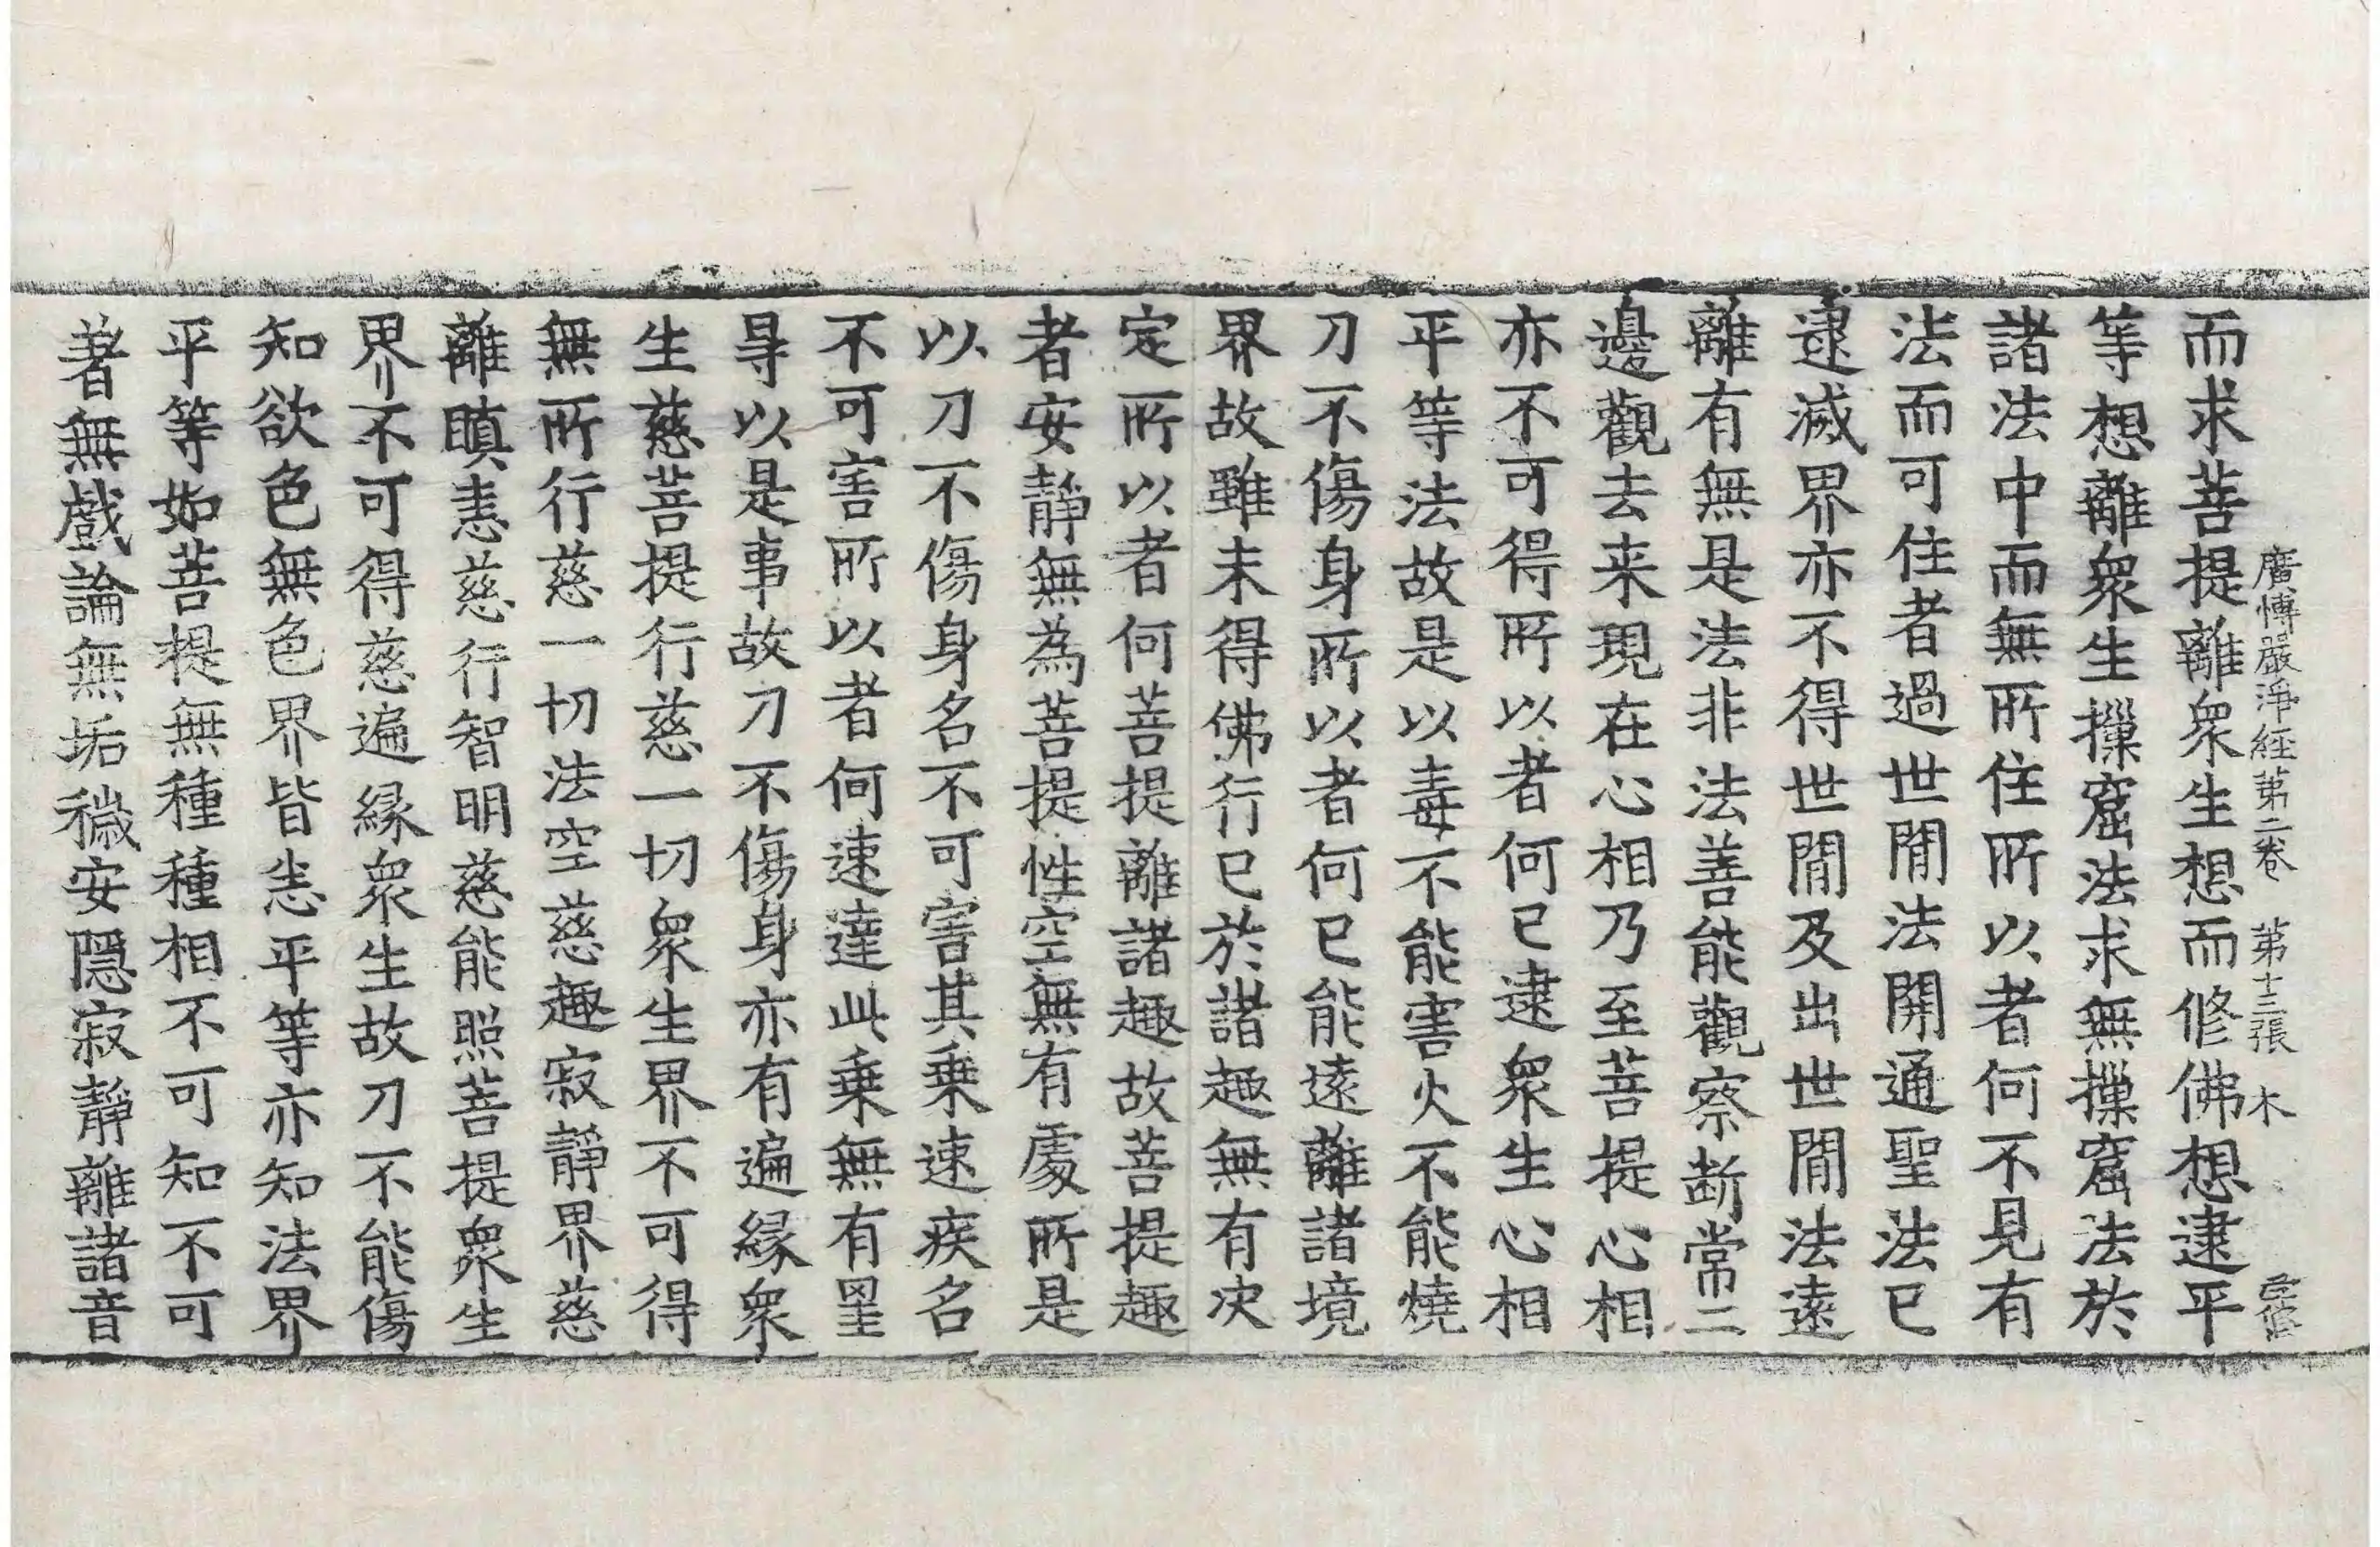 廣愽嚴淨經第二卷 第十三張 木
而求菩提離衆生想而修佛想逮平
等想離衆生摷窟法求無摷窟法於
諸法中而無所住所以者何不見有
法而可住者過世閒法開通聖法已
逮滅界亦不得世閒及出世閒法遠
離有無是法非法善能觀察断常二
邊觀去来現在心相乃至菩提心相
亦不可得所以者何已逮衆生心相
平等法故是以毒不能害火不能燒
刀不傷身所以者何已能遠離諸境
界故雖未得佛行已於諸趣無有决
定所以者何菩提離諸趣故菩提趣
者安靜無為菩提性空無有處所是
以刀不傷身名不可害其乗速疾名
不可害所以者何速達此乗無有罣
㝵以是事故刀不傷身亦有遍緣衆
生慈菩提行慈一切衆生界不可得
無所行慈一切法空慈趣寂靜界慈
離瞋恚慈行智明慈能照菩提衆生
界不可得慈遍緣衆生故刀不能傷
知欲色無色界皆悉平等亦知法界
平等如菩提無種種相不可知不可
著無戲論無垢穢安隱寂靜離諸音